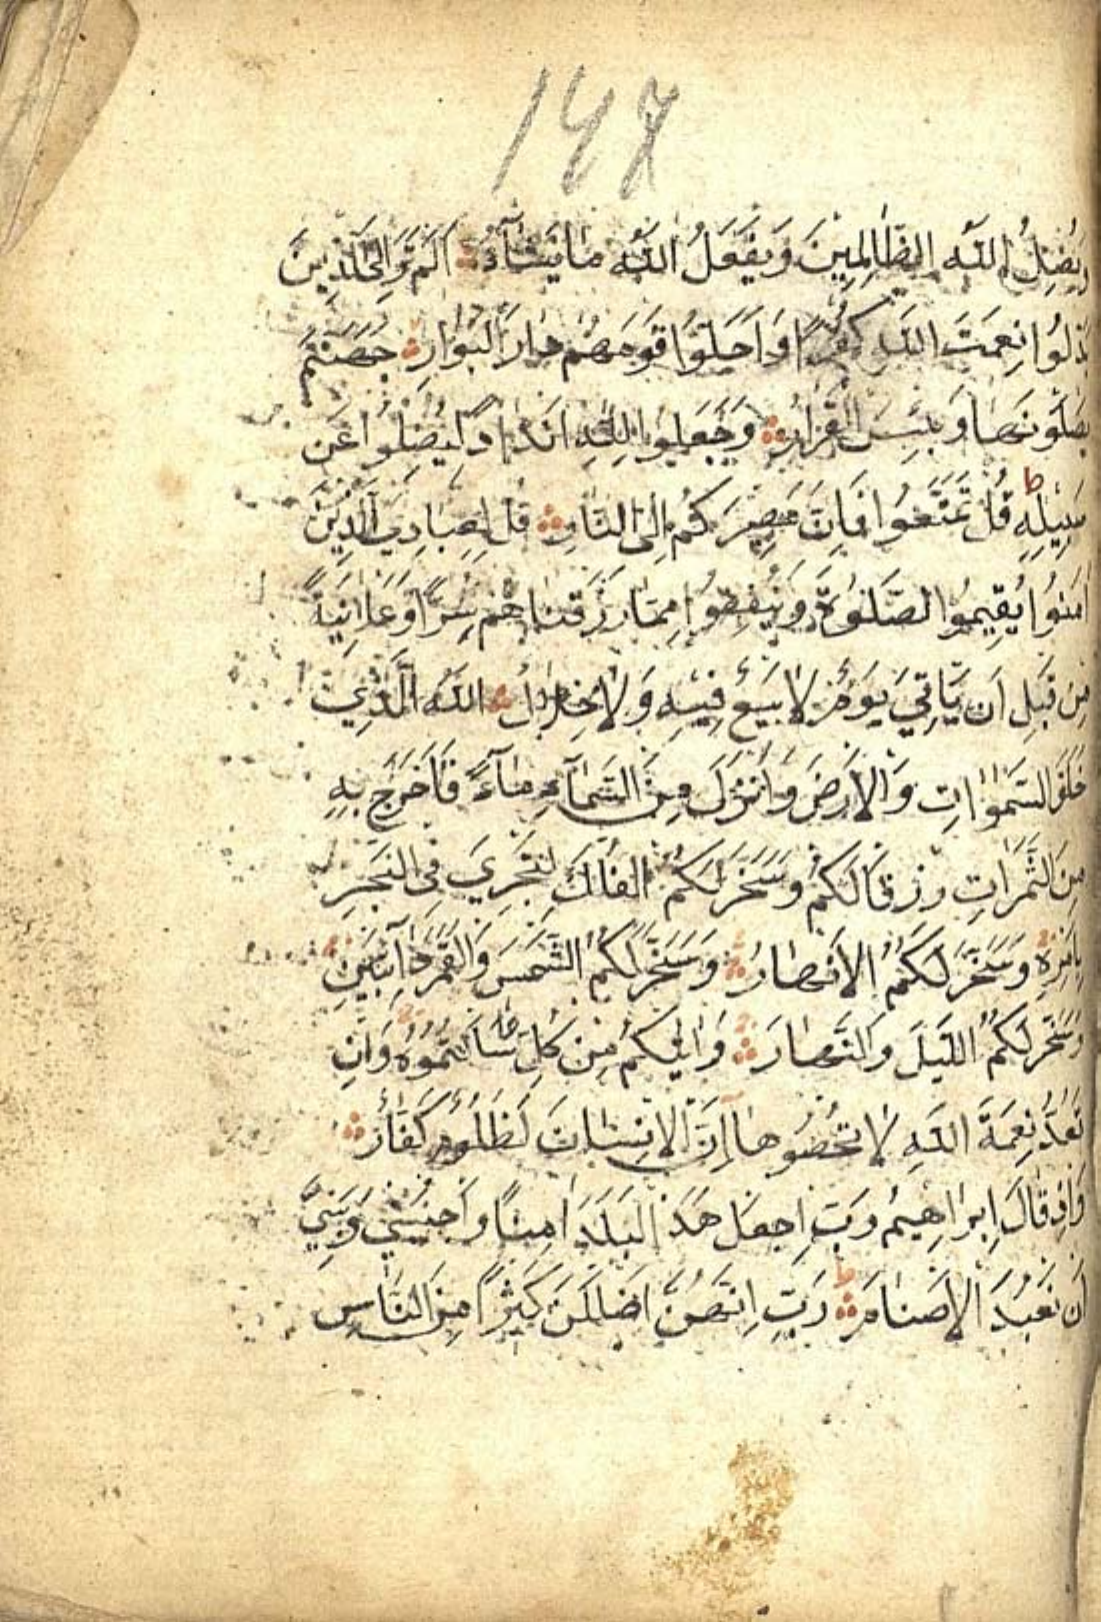 147
وَيُضِلُّ اللّٰهُ الظَّالِمِينَ وَيَفْعَلُ اللّٰهُ مَا يَشَآءُ اَلَمْ تَرَ اِلَى الَّذِينَ
بَدَّلُوا نِعْمَتَ اللّٰهِ كُفْرًا وَاَحَلُّوا قَوْمَهُمْ دَارَ الْبَوَارِ جَهَنَّمَ
يَصْلَوْنَهَا وَبِئْسَ الْقَرَارُ وَجَعَلُوا لِلّٰهِ اَنْدَادًا لِيُضِلُّوا عَنْ
سَبِيلِهِ ط قُلْ تَمَتَّعُوا فَاِنَّ مَصِيرَكُمْ اِلَى النَّارِ قُلْ لِعِبَادِيَ الَّذِينَ
اٰمَنُوا يُقِيمُوا الصَّلٰوةَ وَيُنْفِقُوا مِمَّا رَزَقْنَاهُمْ سِرًّا وَعَلَانِيَةً
مِنْ قَبْلِ اَنْ يَّاْتِيَ يَوْمٌ لَا بَيْعٌ فِيْهِ وَلَا خِلَالٌ اَللّٰهُ الَّذِي
خَلَقَ السَّمٰوَاتِ وَالْاَرْضَ وَاَنْزَلَ مِنَ السَّمَآءِ مَآءً فَاَخْرَجَ بِهِ
مِنَ الثَّمَرَاتِ رِزْقًا لَكُمْ وَسَخَّرَ لَكُمُ الْفُلْكَ لِتَجْرِيَ فِي الْبَحْرِ
بِاَمْرِهِ وَسَخَّرَ لَكُمُ الْاَنْهَارَ وَسَخَّرَ لَكُمُ الشَّمْسَ وَالْقَمَرَ دَآئِبَيْنِ
وَسَخَّرَ لَكُمُ اللَّيْلَ وَالنَّهَارَ وَاٰتٰيكُمْ مِنْ كُلِّ مَا سَاَلْتُمُوهُ وَاِنْ
تَعُدُّوا نِعْمَةَ اللّٰهِ لَا تُحْصُوهَا اِنَّ الْاِنْسَانَ لَظَلُومٌ كَفَّارٌ
وَاِذْ قَالَ اِبْرَاهِيمُ رَبِّ اجْعَلْ هٰذَ الْبَلَدَ اٰمِنًا وَاجْنُبْنِي وَبَنِيَّ
اَنْ نَعْبُدَ الْاَصْنَامَ ط رَبِّ اِنَّهُنَّ اَضْلَلْنَ كَثِيْرًا مِنَ النَّاسِ